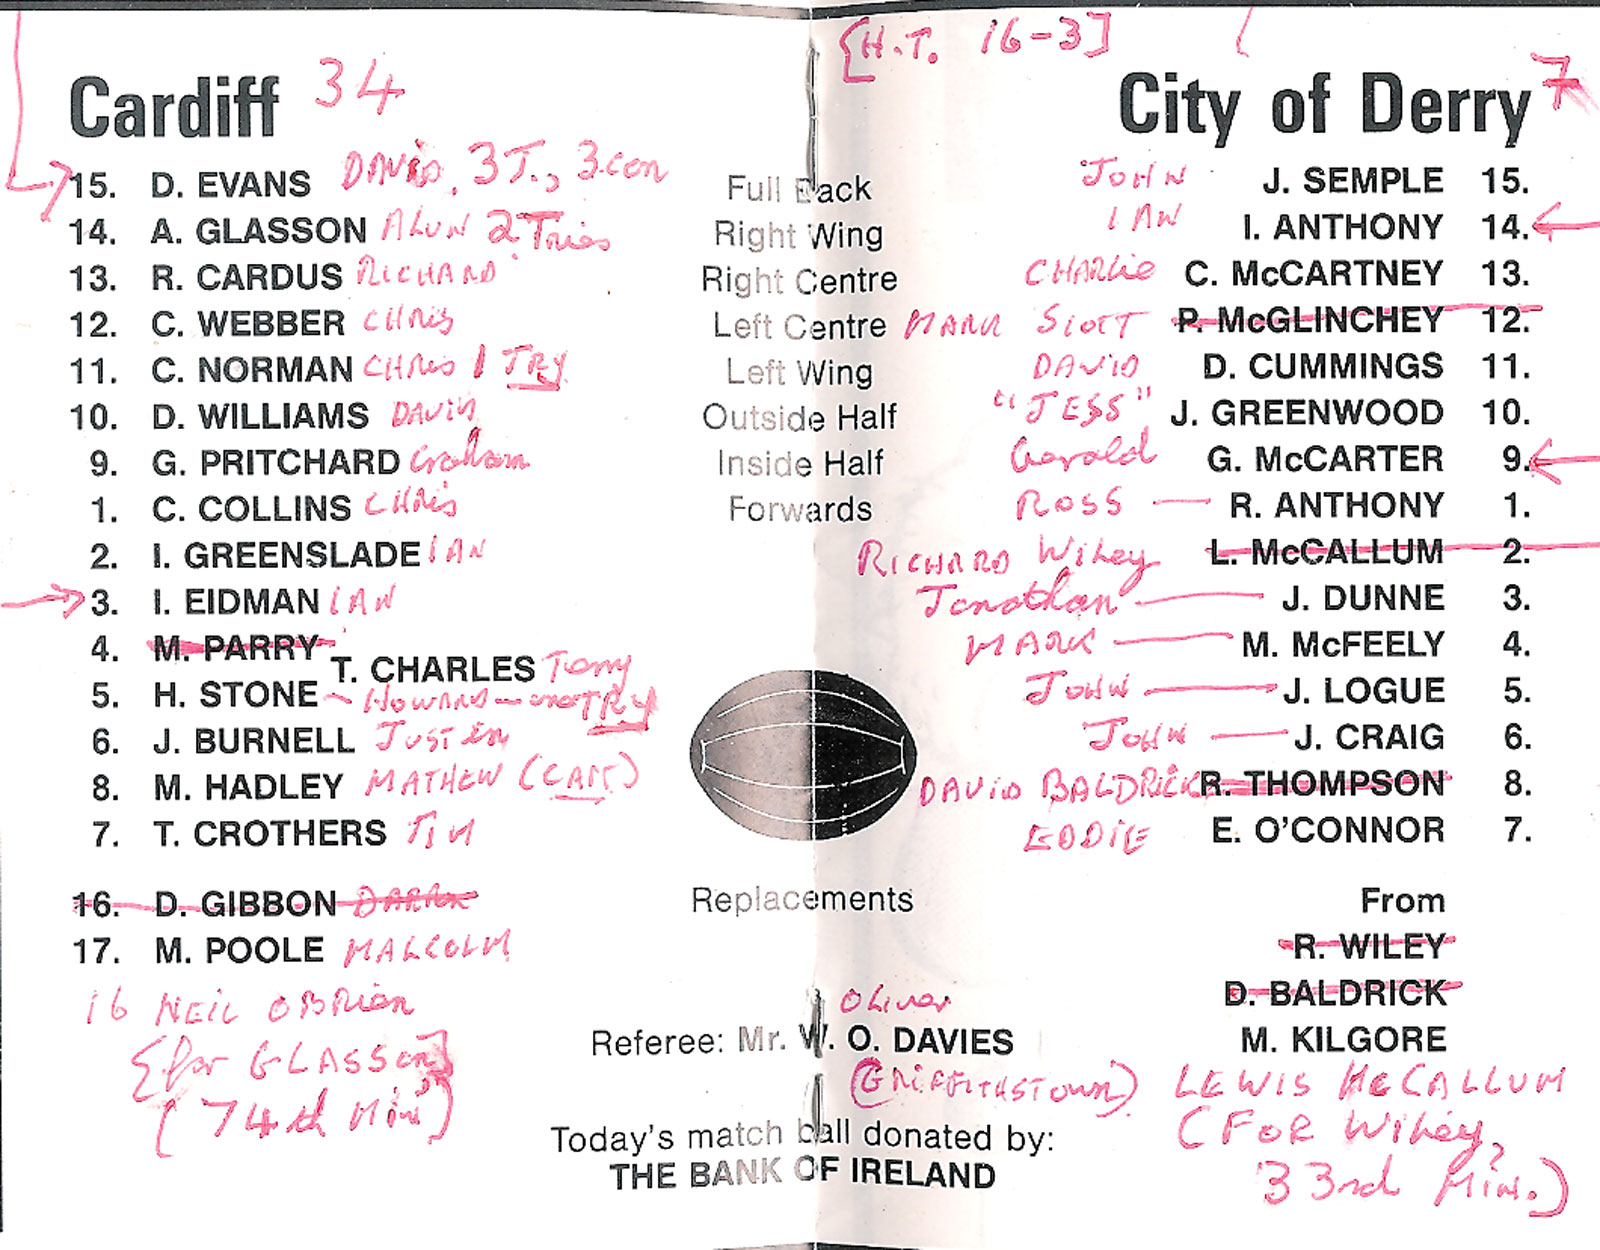 [H.T. 16-3]
Cardiff 34
City of Derry 7
15. D. EVANS DAVID. 3T., 3.con
Full Back
JOHN J. SEMPLE 15.
14. A. GLASSON ALUN 2 Tries
Right Wing
IAN I. ANTHONY 14.
13. R. CARDUS RICHARD
Right Centre
CHARLIE C. McCARTNEY 13.
12. C. WEBBER CHRIS
Left Centre
MARK SCOTT P. McGLINCHEY 12.
11. C. NORMAN CHRIS 1 TRY
Left Wing
DAVID D. CUMMINGS 11.
10. D. WILLIAMS DAVID
Outside Half
"JESS" J. GREENWOOD 10.
9. G. PRITCHARD Graham
Inside Half
Gerald G. McCARTER 9.
1. C. COLLINS CHRIS
Forwards
ROSS — R. ANTHONY 1.
2. I. GREENSLADE IAN
RICHARD Wiley L. McCALLUM 2.
3. I. EIDMAN IAN
Jonathan — J. DUNNE 3.
4. M. PARRY T. CHARLES Tony
MARK — M. McFEELY 4.
5. H. STONE - HOWARD - one TRY
JOHN — J. LOGUE 5.
6. J. BURNELL JUSTIN
JOHN — J. CRAIG 6.
8. M. HADLEY MATHEW (CAPT)
DAVID BALDRICK R. THOMPSON 8.
7. T. CROTHERS TIM
EDDIE E. O'CONNOR 7.
16. D. GIBBON
Replacements
From
17. M. POOLE MALCOLM
R. WILEY
16 NEIL OBRIEN
D. BALDRICK
[for GLASSON]
(74th Min)
Oliver
Referee: Mr. W. O. DAVIES
(GRIFFITHSTOWN)
M. KILGORE
LEWIS McCALLUM
(FOR Wiley,
33rd Min.)
Today's match ball donated by:
THE BANK OF IRELAND